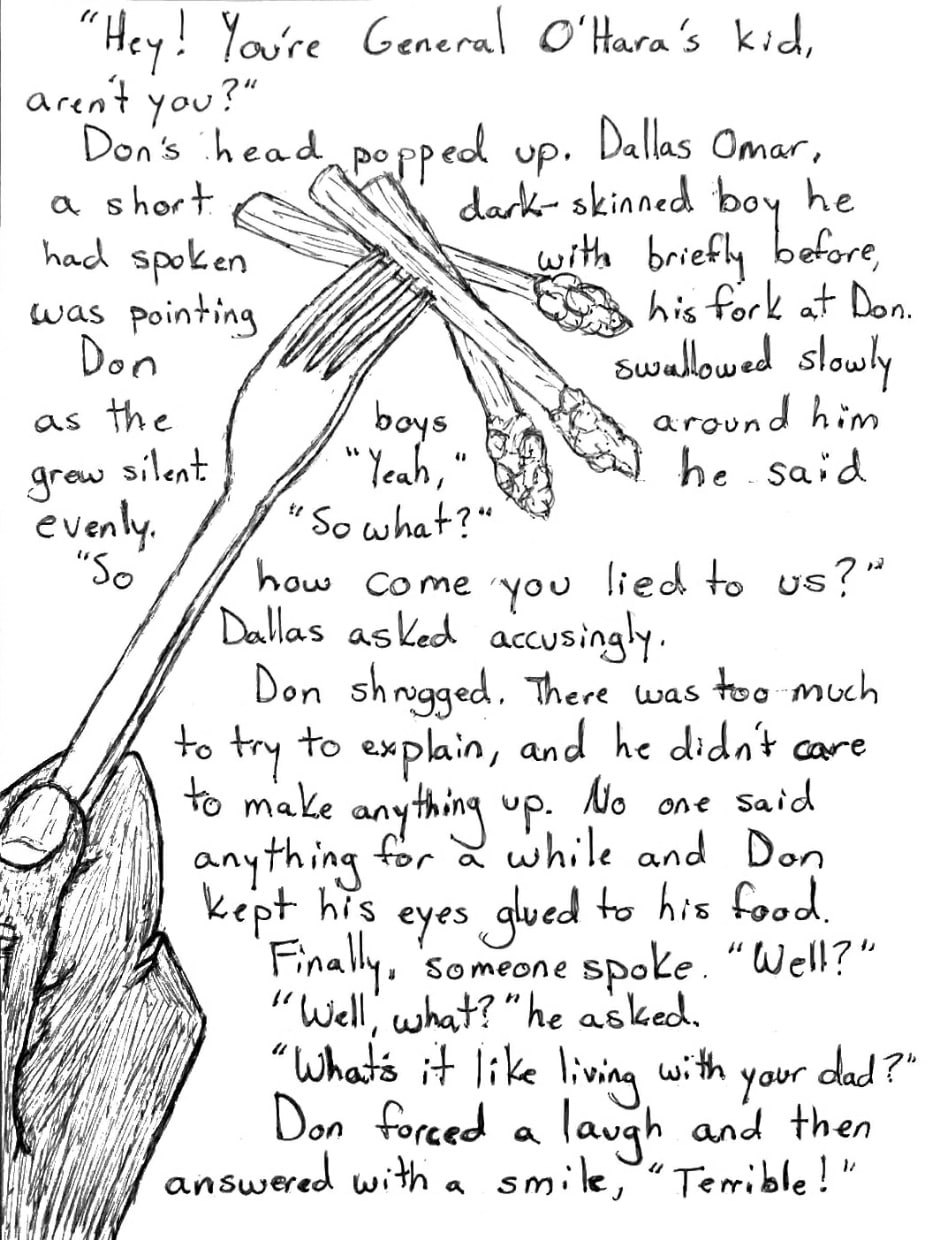 "Hey! You're General O'Hara's kid,
aren't you?"
Don's head popped up. Dallas Omar,
a short dark-skinned boy he
had spoken with briefly before,
was pointing his fork at Don.
Don swallowed slowly
as the boys around him
grew silent. "Yeah," he said
evenly. "So what?"
"So how come you lied to us?"
Dallas asked accusingly.
Don shrugged. There was too much
to try to explain, and he didn't care
to make anything up. No one said
anything for a while and Don
kept his eyes glued to his food.
Finally, someone spoke. "Well?"
"Well, what?" he asked.
"What's it like living with your dad?"
Don forced a laugh and then
answered with a smile, "Terrible!"